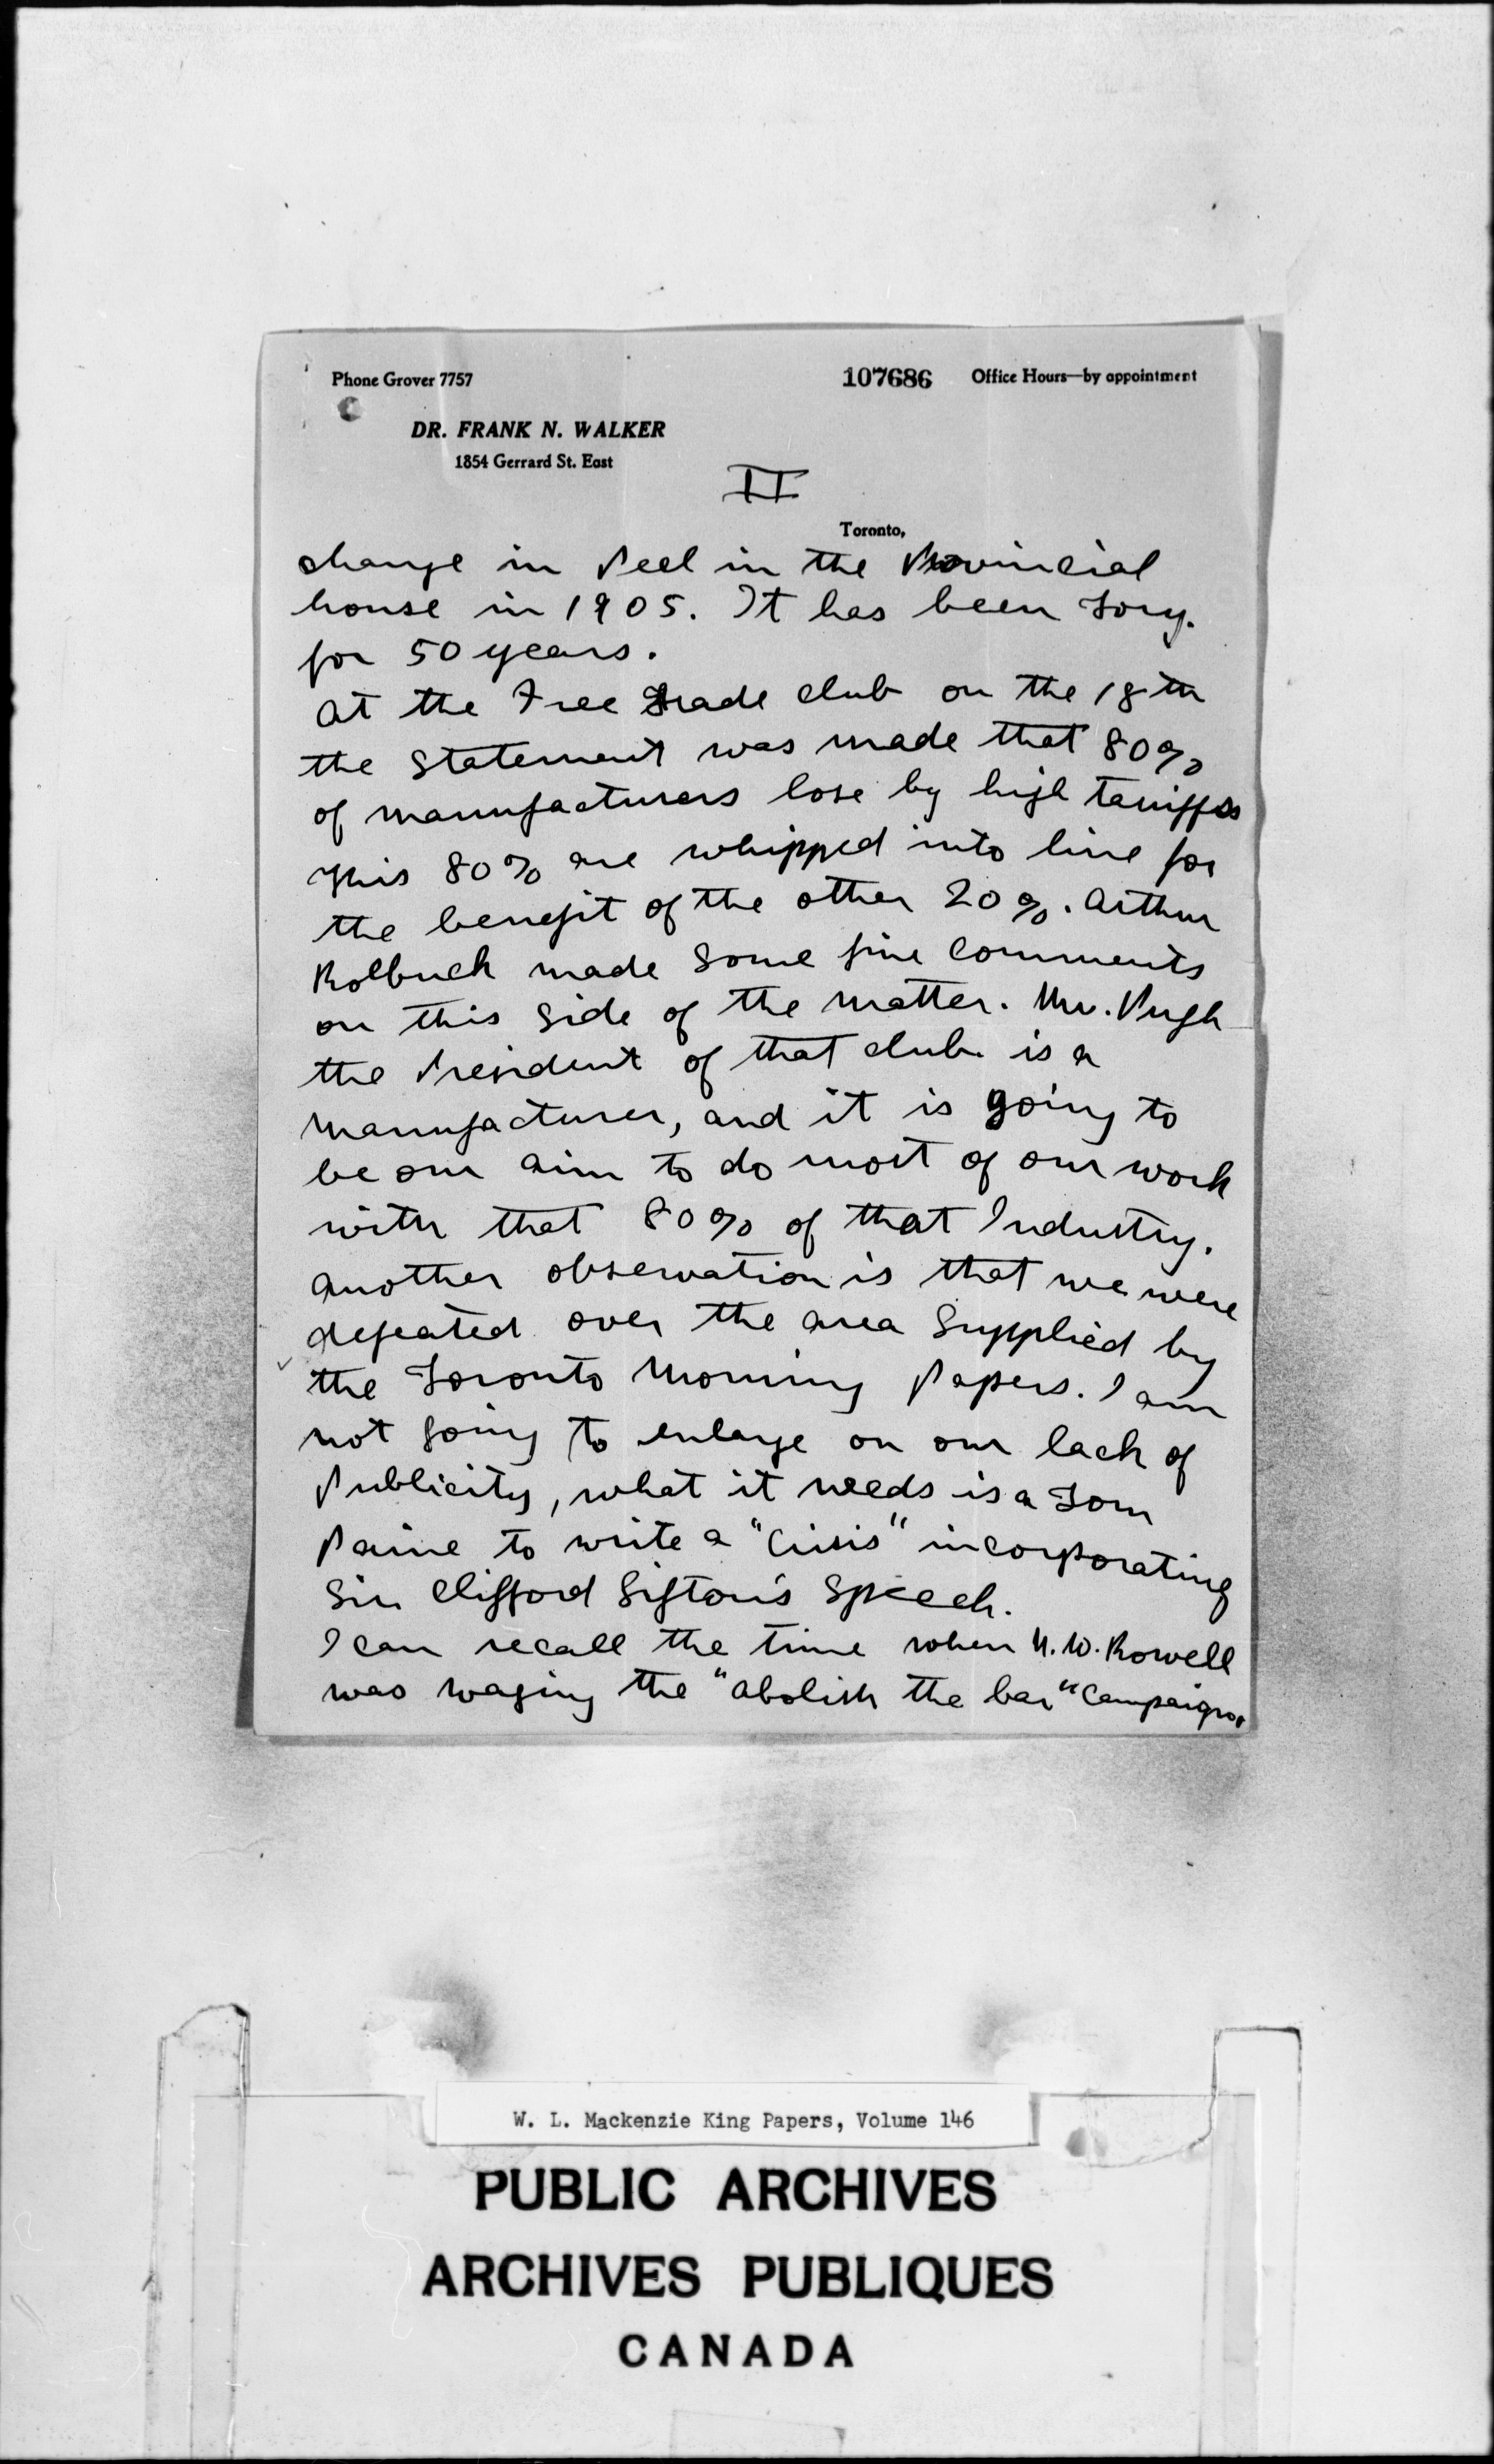 Phone Grover 7757
107686 Office Hours—by appointment
DR. FRANK N. WALKER
1854 Gerrard St. East
II
Toronto,
change in Peel in the Provincial
house in 1905. It has been Tory.
for 50 years.
At the Free Trade Club on the 18th
the statement was made that 80%
of manufacturers lose by high tariffs
This 80% are whipped into line for
the benefit of the other 20%. Arthur
Rolbuck made some fine comments
on this side of the matter. Mr. Pugh
the President of that club is a
manufacturer, and it is going to
be our aim to do most of our work
with that 80% of that Industry.
Another observation is that we were
defeated over the area supplied by
the Toronto Morning Papers. I am
not going to enlarge on our lack of
Publicity, what it needs is a Tom
Paine to write a "Crisis" incorporating
Sir Clifford Sifton's speech.
I can recall the time when N. W. Rowell
was waging the "Abolish the bar" Campaign.
W. L. Mackenzie King Papers, Volume 146
PUBLIC ARCHIVES
ARCHIVES PUBLIQUES
CANADA